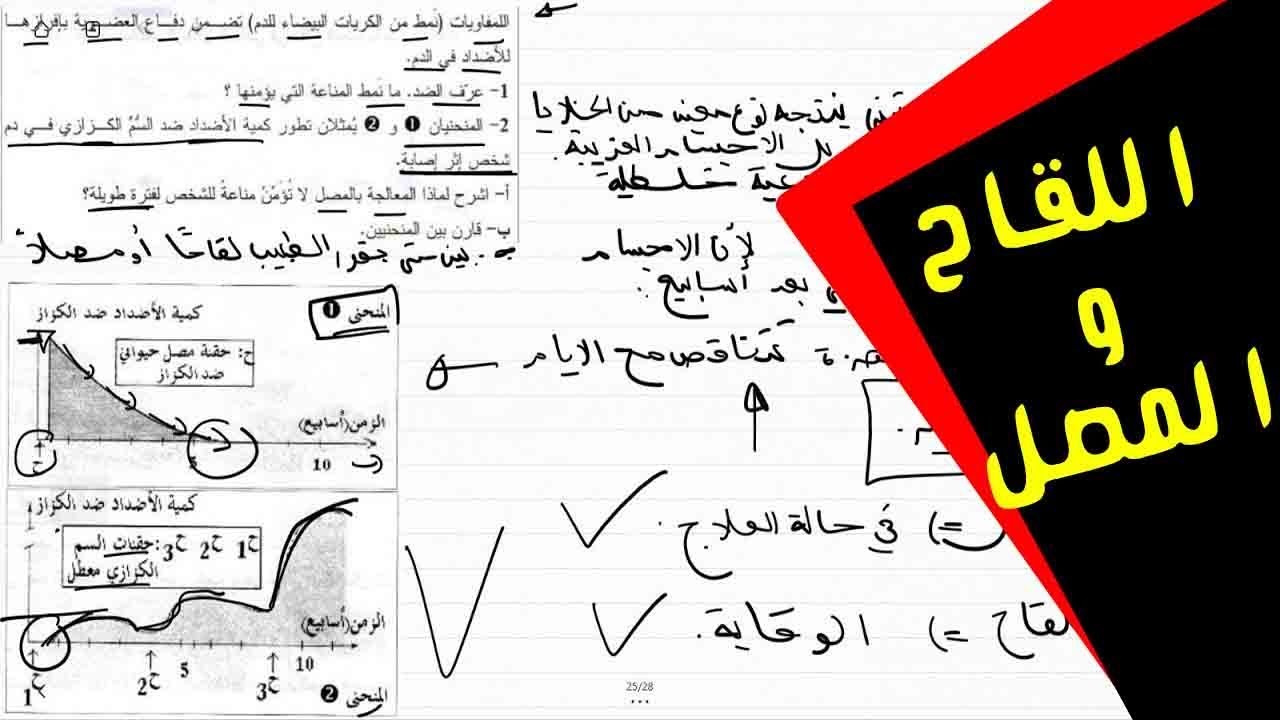 اللمفاويات (نمط من الكريات البيضاء للدم) تضمن دفاع العضوية بإفرازها
للأضداد في الدم.
1- عرّف الضد. ما نمط المناعة التي يؤمنها ؟
2- المنحنيان ❶ و ❷ يُمثلان تطور كمية الأضداد ضد السُّمّ الكزازي في دم
شخص إثر إصابة.
أ- اشرح لماذا المعالجة بالمصل لا تُؤَمِّنُ مناعةً للشخص لفترة طويلة؟
ب- قارن بين المنحنيين.
بين متى يحقن الطبيب لقاحًا أو مصلا
المنحنى ❶
كمية الأضداد ضد الكزاز
ح: حقنة مصل حيواني
ضد الكزاز
الزمن(أسابيع)
ح
5
10
كمية الأضداد ضد الكزاز
ح1 ح2 ح3 :حقنات السم
الكزازي معطل
الزمن(أسابيع)
5
10
ح1
ح2
ح3
المنحنى ❷
ينتجه نوع معين من الخلايا
الاجسام الغريبة.
خلطية
لأن الاجسام
بعد أسابيع.
تتناقص مع الايام
في حالة العلاج.
الوقاية.
25/28
اللقاح
و
المصل